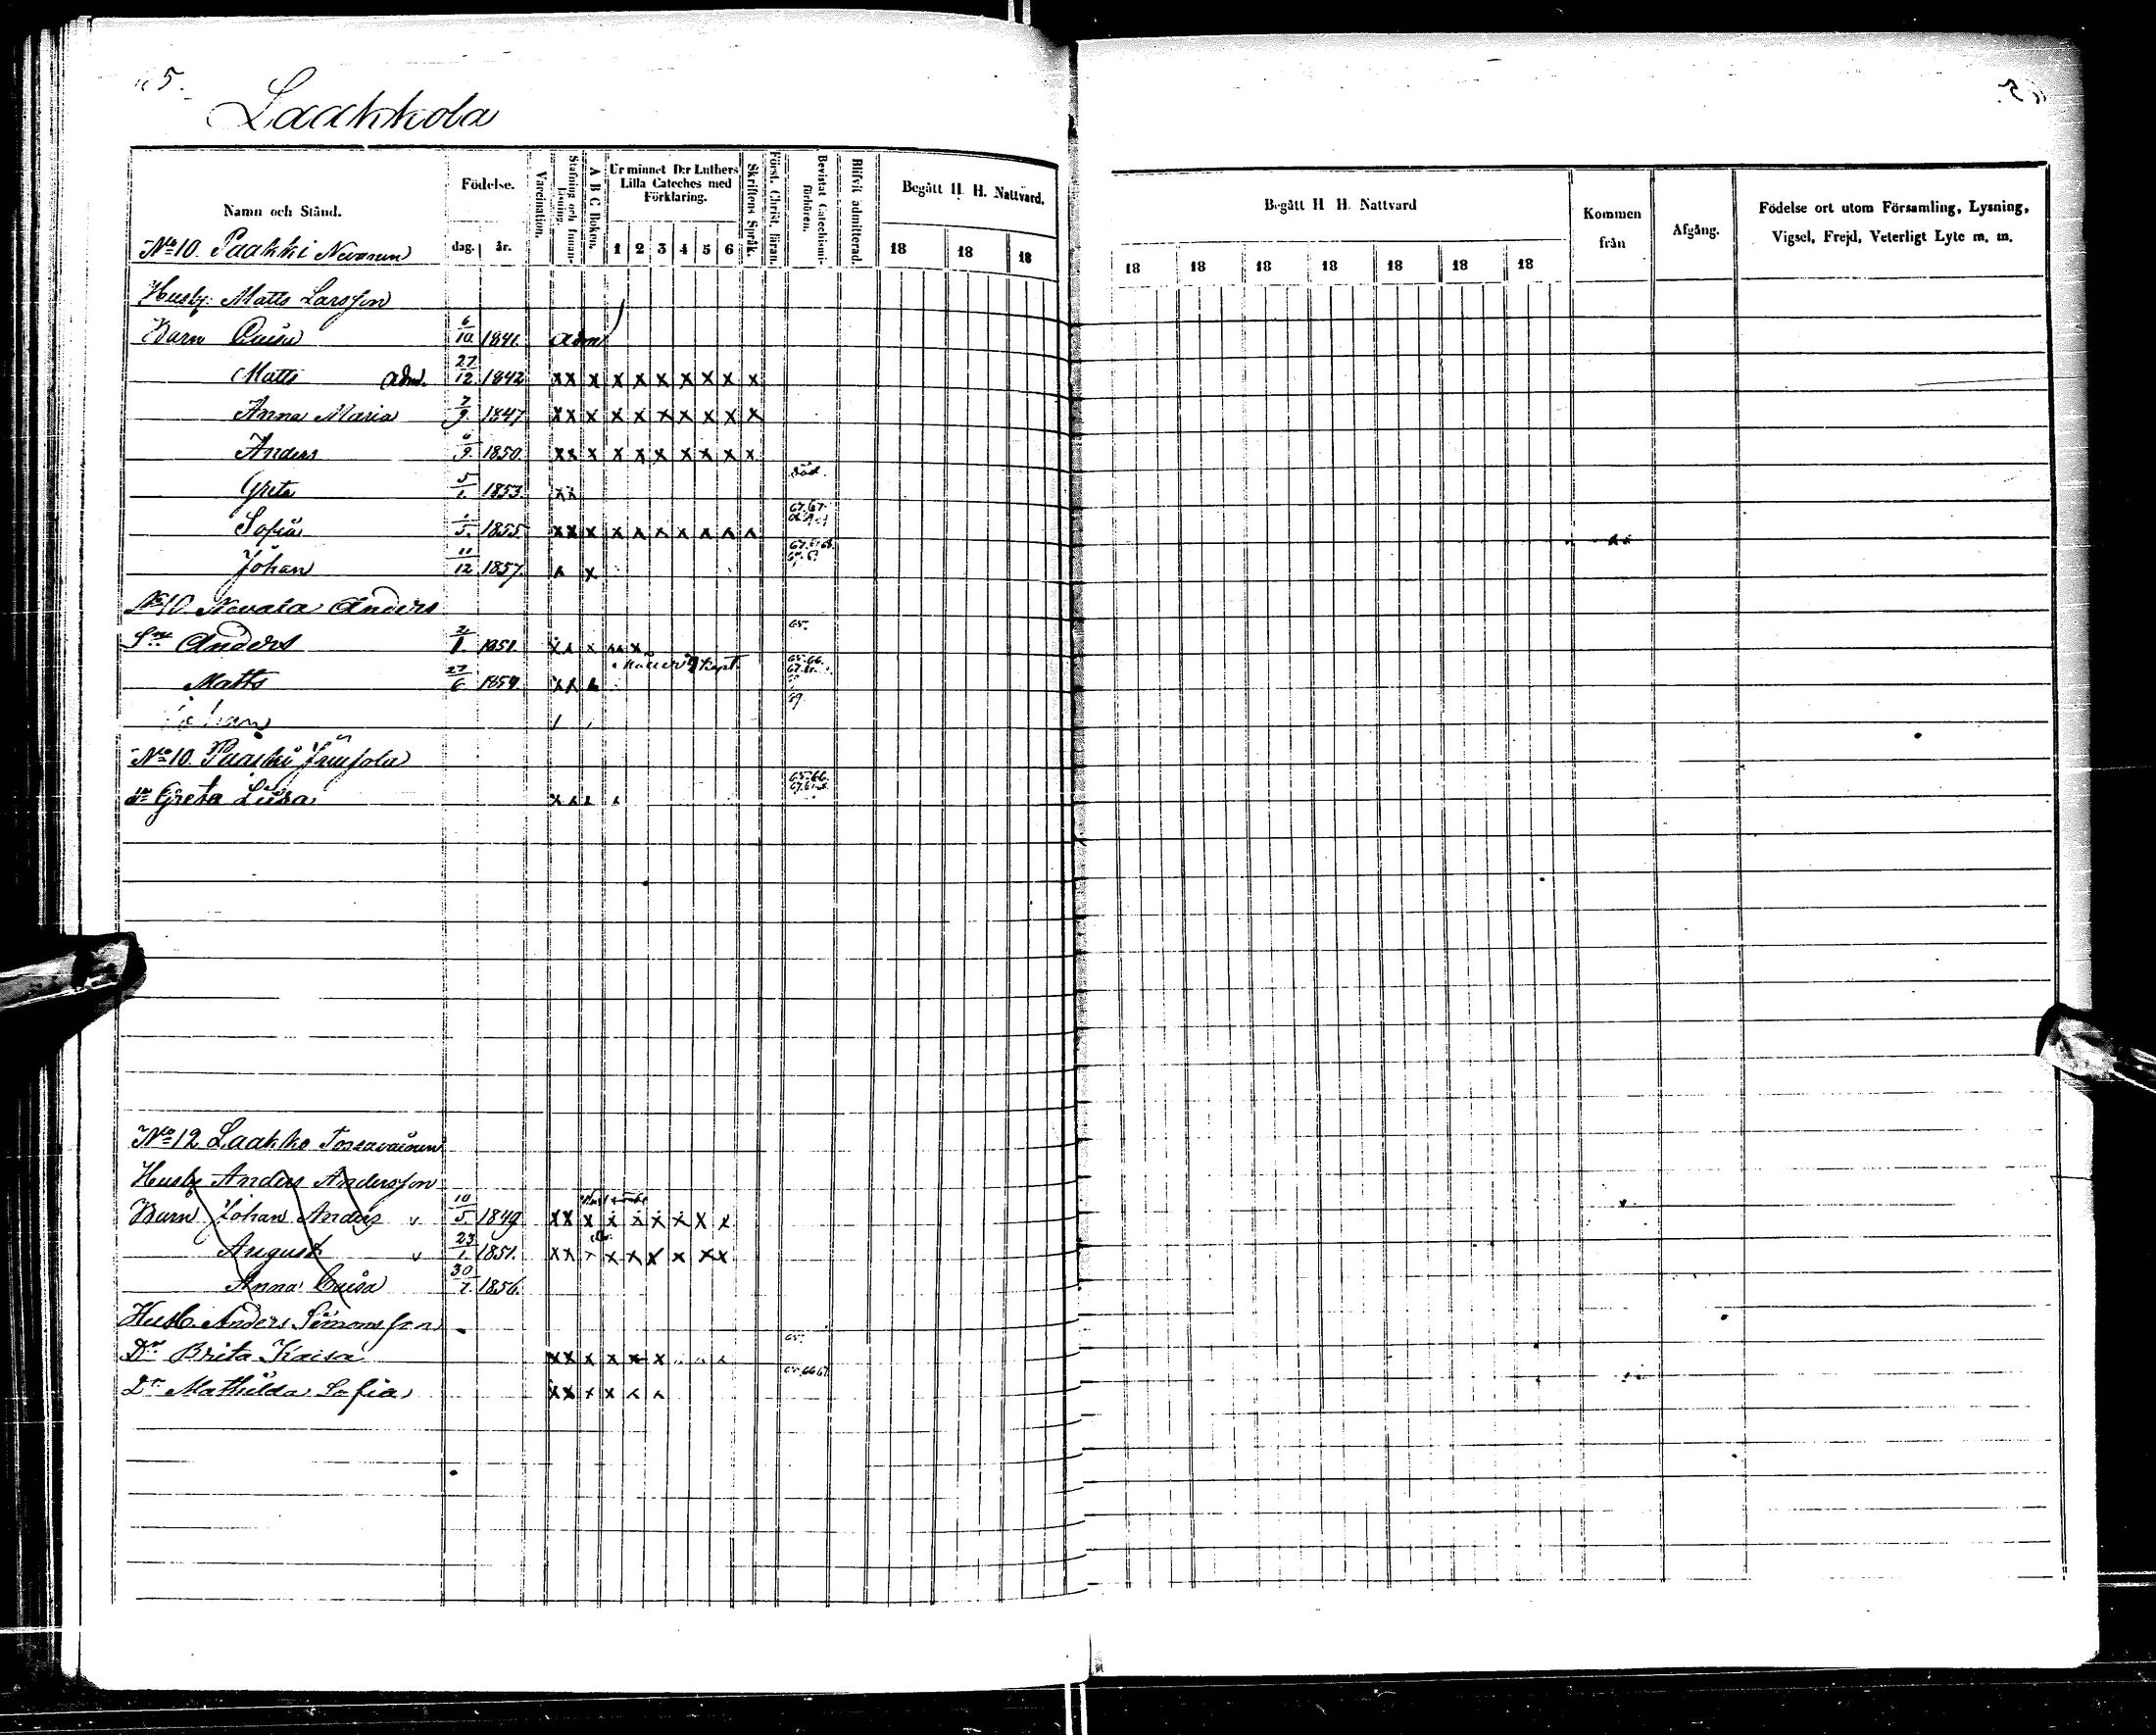 Laakkola
Namn och Stånd.
Födelse.
dag. år.
Vaccination.
Stafning och Innan-läsning.
A B C Boken.
Ur minnet D:r Luthers Lilla Cateches med Förklaring.
1 2 3 4 5 6
Skriftens Språk.
Först. Christ. läran.
Bevistat Catechismi-förhören.
Blifvit admitterad.
Begått H. H. Nattvard.
18 18 18
Begått H H. Nattvard
18 18 18 18 18 18 18
Kommen från
Afgång.
Födelse ort utom Församling, Lysning, Vigsel, Frejd, Veterligt Lyte m. m.
No 10. Paakki
Husb: Matts Larsson
Barn 6/10 1841. adm
Matts adm. 27/12 1842 x x x x x x x x x x
Anna Maria 7/9 1847 x x x x x x x x x x
Anders 1850. x x x x x x x x x x
Greta 5/1. 1853. x x död.
Sofia 1855. x x x x x x x x x x
Johan 11/12 1857. x x
No 10. Anders
Sn Anders 1851. x x x 65.
Matts 27/6 1859. x x x
Johan
No 10.
Greta Liisa 65.66.
No 12 Laakko Tossavainen
Husb Anders Andersson
Barn Johan Anders v 10/5. 1849 x x x x x x x x x
August v 23/1. 1851. x x x x x x x x x
Anna Caisa 30/7. 1856.
Husb. Anders Simonsson
Dr Brita Kaisa x x x x x x 65.
Dr Mathilda Sofia x x x x x x 65.66.67.